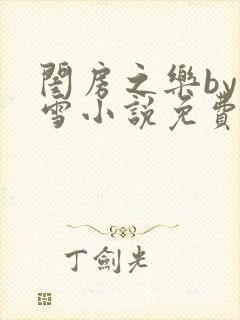 閨房之樂by
雪小說免費
丁劍光